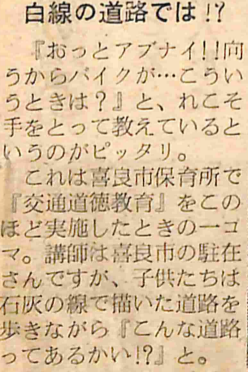 白線の道路では!?
『おっとアブナイ!!向
うからバイクが…こうい
うときは？』と、れこそ
手をとって教えていると
いうのがピッタリ。
これは喜良市保育所で
『交通道徳教育』をこの
ほど実施したときの一コ
マ。講師は喜良市の駐在
さんですが、子供たちは
石灰の線で描いた道路を
歩きながら『こんな道路
ってあるかい!?』と。